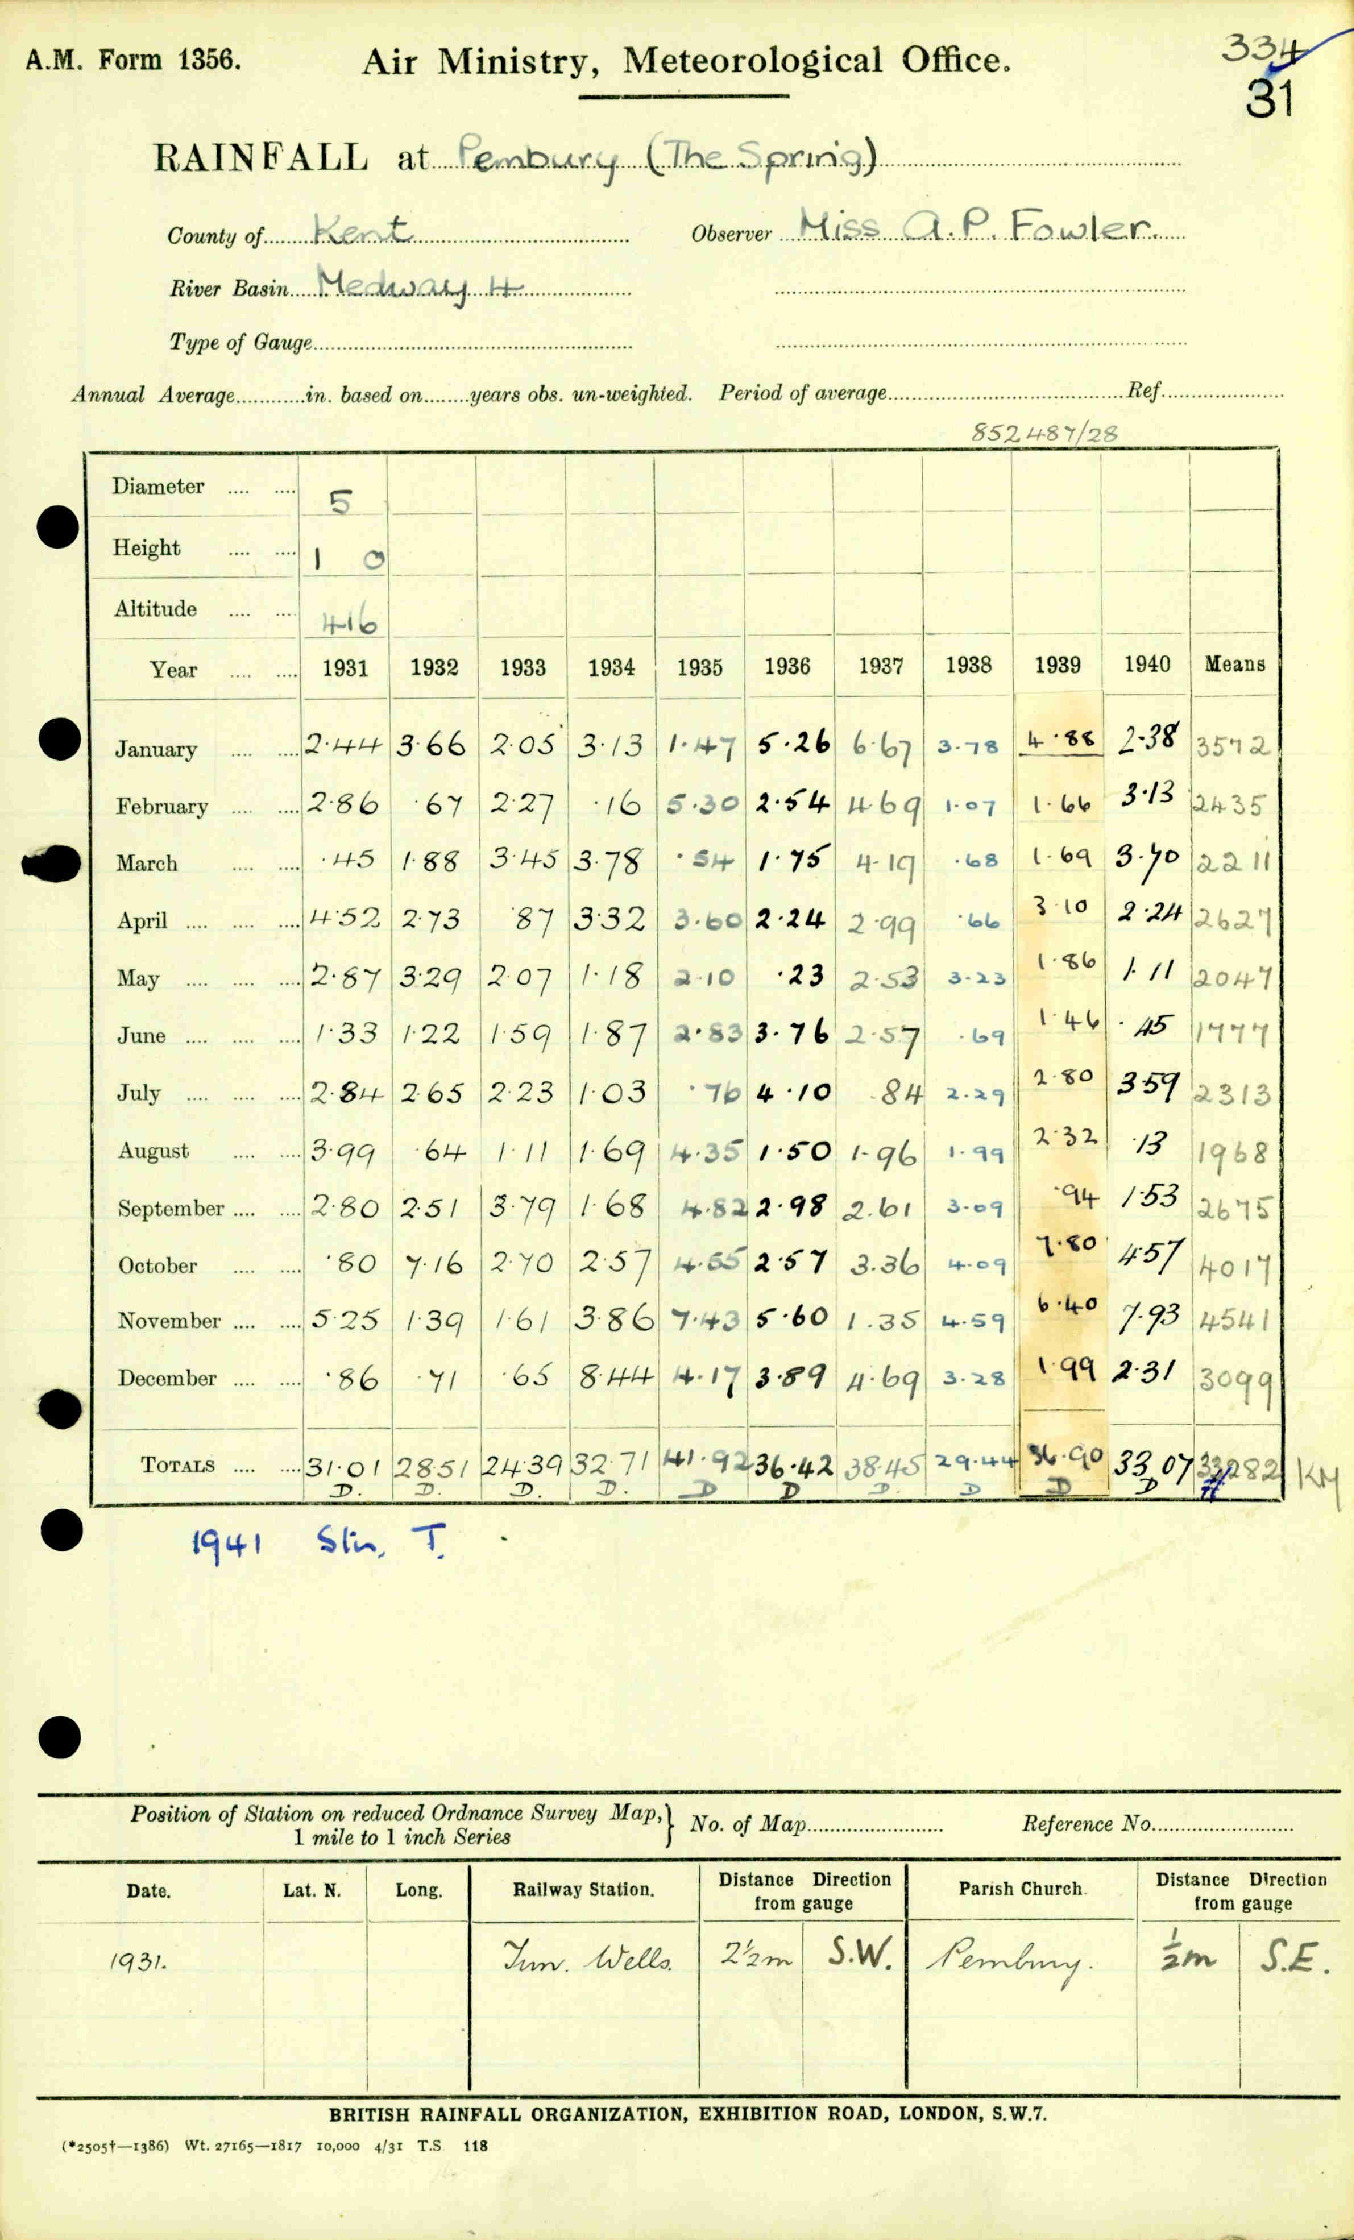 A.M. Form 1356. Air Ministry, Meteorological Office. 334
31
RAINFALL at Pembury (The Spring)
County of Kent Observer Miss A. P. Fowler.
River Basin Medway 4
Type of Gauge
Annual Average in. based on years obs. un-weighted. Period of average Ref.
852487/28
Diameter 5
Height 1 0
Altitude 416
Year 1931 1932 1933 1934 1935 1936 1937 1938 1939 1940 Means
January 2.44 3.66 2.05 3.13 1.47 5.26 6.67 3.78 4.88 2.38 3572
February 2.86 .67 2.27 .16 5.30 2.54 4.69 1.07 1.66 3.13 2435
March .45 1.88 3.45 3.78 .54 1.75 4.19 .68 1.69 3.70 2211
April 4.52 2.73 .87 3.32 3.60 2.24 2.99 .66 3.10 2.24 2627
May 2.87 3.29 2.07 1.18 2.10 .23 2.53 3.23 1.86 1.11 2047
June 1.33 1.22 1.59 1.87 2.83 3.76 2.57 .69 1.46 .45 1777
July 2.84 2.65 2.23 1.03 .76 4.10 .84 2.29 2.80 3.59 2313
August 3.99 .64 1.11 1.69 4.35 1.50 1.96 1.99 2.32 .13 1968
September 2.80 2.51 3.79 1.68 4.82 2.98 2.61 3.09 .94 1.53 2675
October .80 7.16 2.70 2.57 4.55 2.57 3.36 4.09 7.80 4.57 4017
November 5.25 1.39 1.61 3.86 7.43 5.60 1.35 4.59 6.40 7.93 4541
December .86 .71 .65 8.44 4.17 3.89 4.69 3.28 1.99 2.31 3099
TOTALS 31.01 28.51 24.39 32.71 41.92 36.42 38.45 29.44 36.90 33.07 33282 KM
D. D. D. D. D D D. D D D
1941 Stn. T.
Position of Station on reduced Ordnance Survey Map, 1 mile to 1 inch Series } No. of Map Reference No.
Date. Lat. N. Long. Railway Station. Distance Direction from gauge Parish Church. Distance Direction from gauge
1931. Tun. Wells. 2½m S.W. Pembury. ½m S.E.
BRITISH RAINFALL ORGANIZATION, EXHIBITION ROAD, LONDON, S.W.7.
(*2505†—1386) Wt. 27165—1817 10,000 4/31 T.S. 118